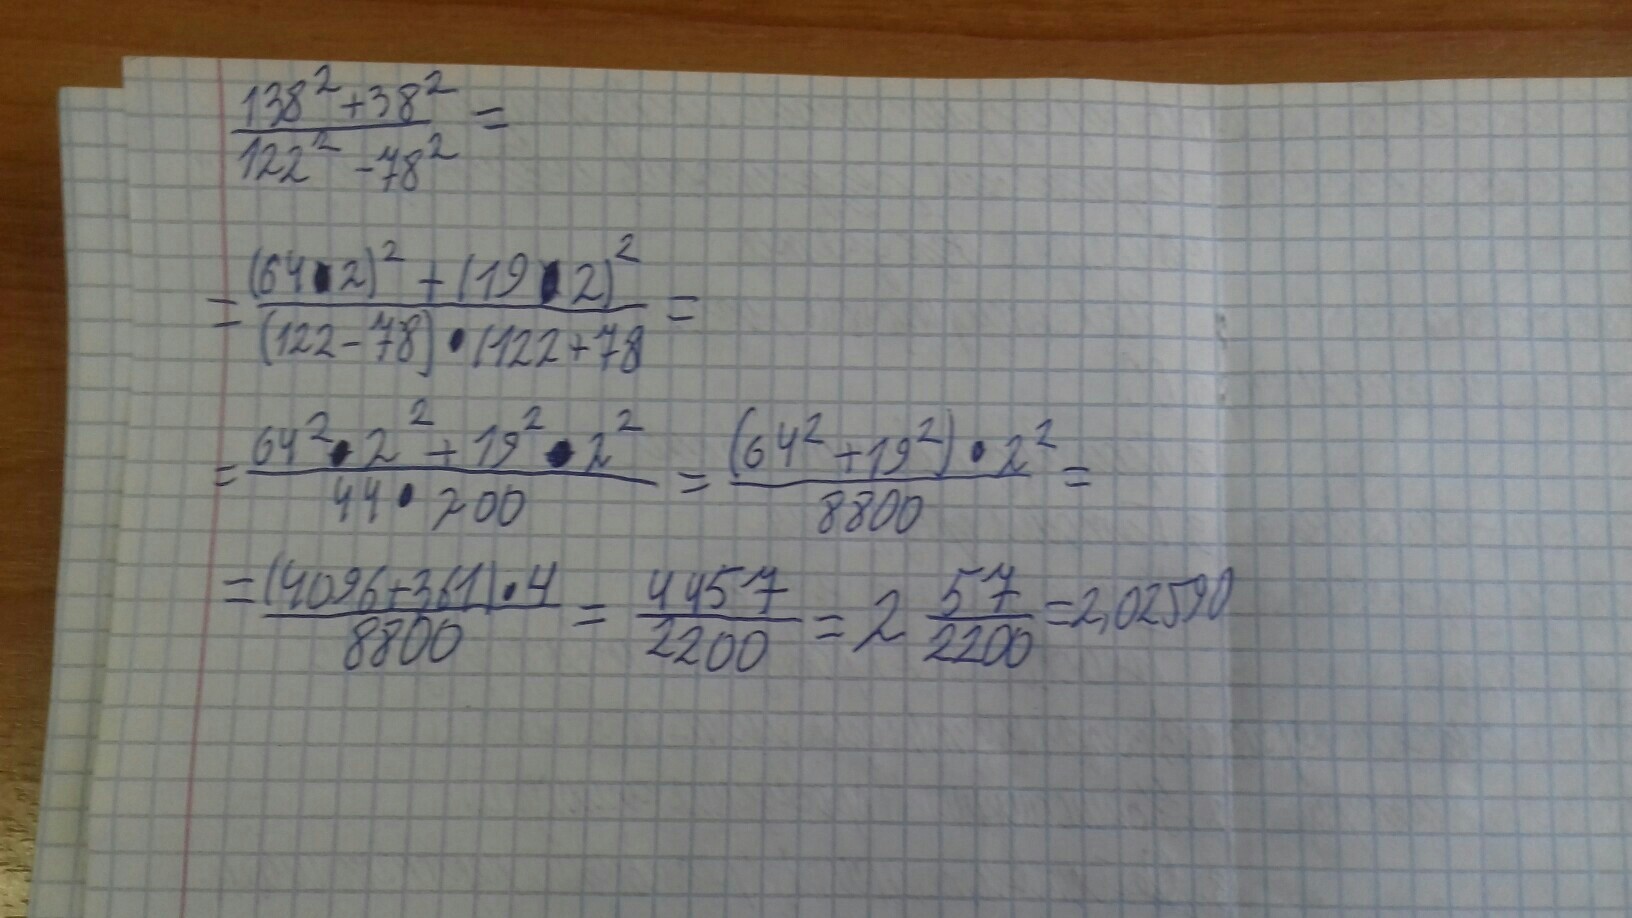 138² + 38² / 122² - 78² =
= (64 · 2)² + (19 · 2)² / (122 - 78) · (122 + 78 =
= 64² · 2² + 19² · 2² / 44 · 200 = (64² + 19²) · 2² / 8800 =
= (4096 + 361) · 4 / 8800 = 4457 / 2200 = 2 57/2200 = 2,02590